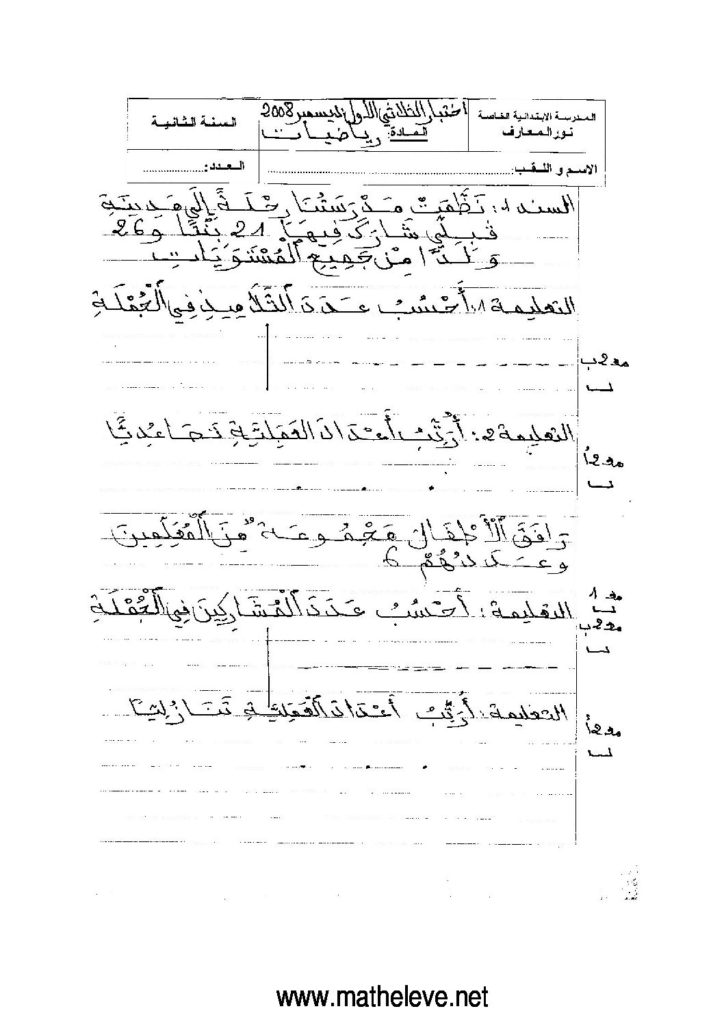 المدرسة الابتدائية الخاصة
نور المعارف
اختبار الثلاثي الأول ديسمبر 2008
المادة: رياضيات
السنة الثانية
الاسم و اللقب:
العدد:
السند 1: نَظَّمَتْ مَدْرَسَتُنَا رِحْلَةً إِلَى مَدِينَةِ
قِبِلِّي شَارَكَ فِيهَا 21 بِنْتًا و 26
وَلَدًا مِنْ جَمِيعِ الْمُسْتَوَيَاتِ
التعليمة 1: أَحْسُبُ عَدَدَ التَّلَامِيذِ فِي الْجُمْلَةِ
مع 2 ب
التعليمة 2: أُرَتِّبُ أَعْدَادَ الْعَمَلِيَّةِ تَصَاعُدِيًّا
مع 2 أ
رَافَقَ الْأَطْفَالَ مَجْمُوعَةٌ مِنَ الْمُعَلِّمِينَ
وعَدَدُهُمْ 6
مع 1
التعليمة: أَحْسُبُ عَدَدَ الْمُشَارِكِينَ فِي الْجُمْلَةِ
مع 2 ب
التعليمة: أُرَتِّبُ أَعْدَادَ الْعَمَلِيَّةِ تَنَازُلِيًّا
مع 2 أ
www.matheleve.net